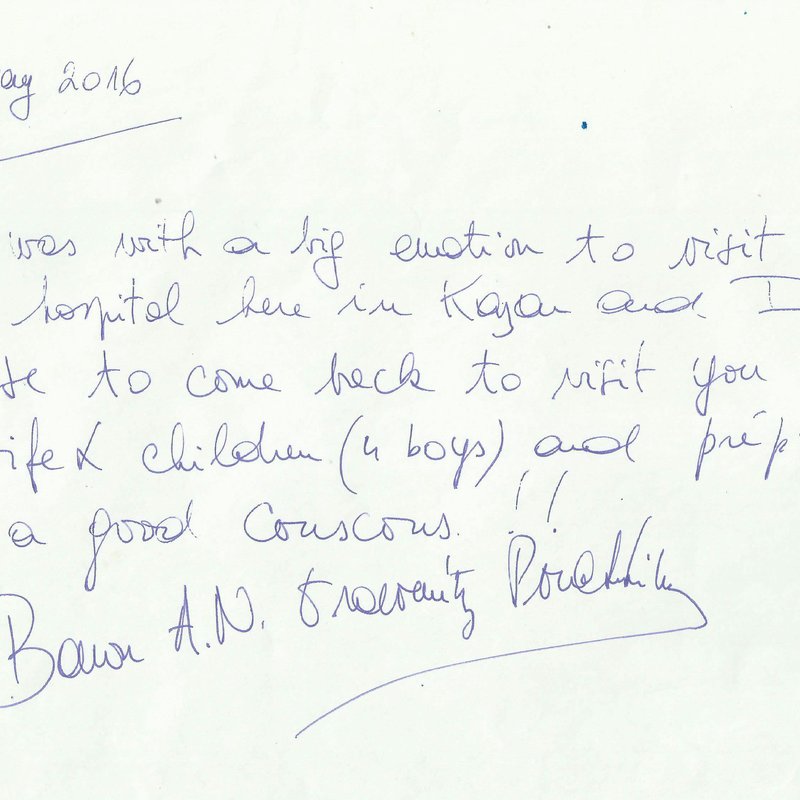 ay 2016
was with a big emotion to visit
hospital here in Kazan and I
te to come back to visit you
ife & children (4 boys) and prép
a good couscous. !!
A.N.